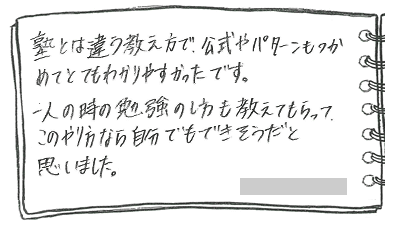 塾とは違う教え方で、公式やパターンもつか
めてとてもわかりやすかったです。
一人の時の勉強のし方も教えてもらって、
このやり方なら自分でもできそうだと
思いました。